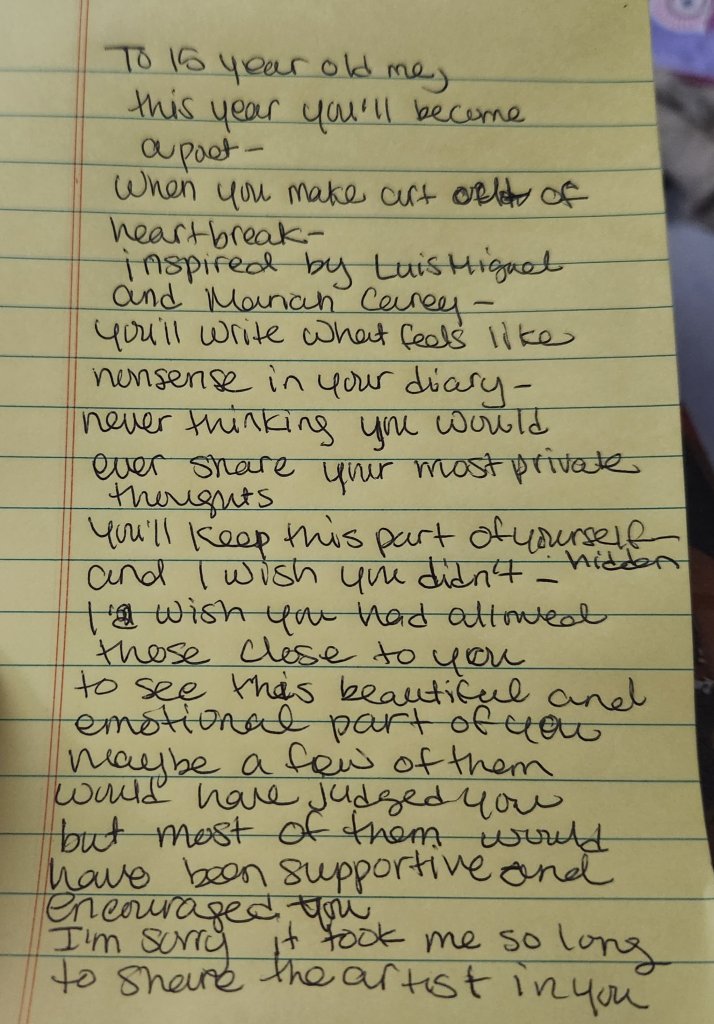 To 15 year old me,
this year you'll become
a poet –
When you make art of
heartbreak –
inspired by Luis Miguel
and Mariah Carey –
you'll write what feels like
nonsense in your diary –
never thinking you would
ever share your most private
thoughts
You'll keep this part of yourself
hidden
and I wish you didn't –
I wish you had allowed
those close to you
to see this beautiful and
emotional part of you
maybe a few of them
would have judged you
but most of them would
have been supportive and
encouraged you
I'm sorry it took me so long
to share the artist in you